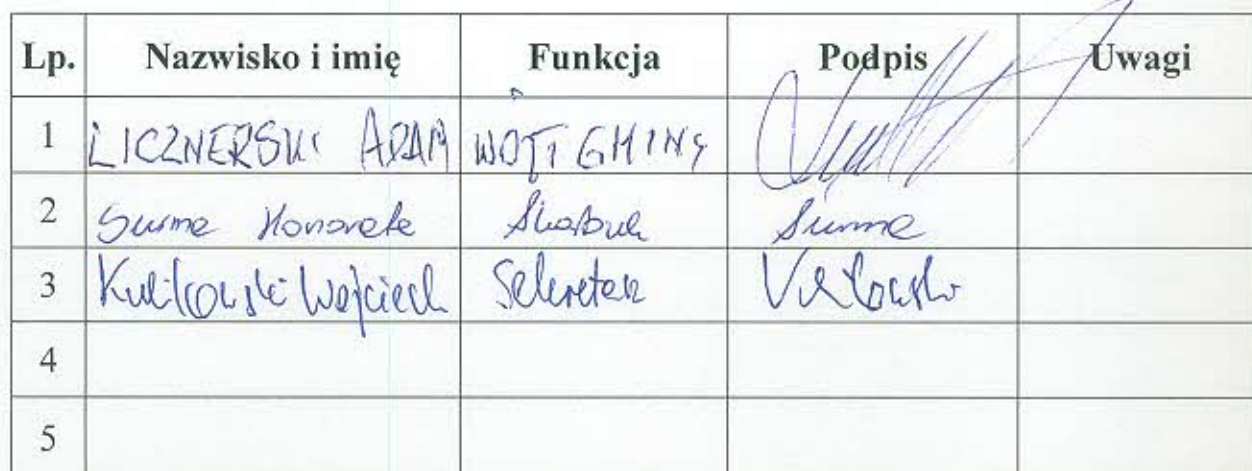 Lp. Nazwisko i imię Funkcja Podpis Uwagi
1 LICZNERSKI ADAM WÓJT GMINY
2 Surma Honorata Skarbnik Surma
3 Kulikowski Wojciech Sekretarz
4
5